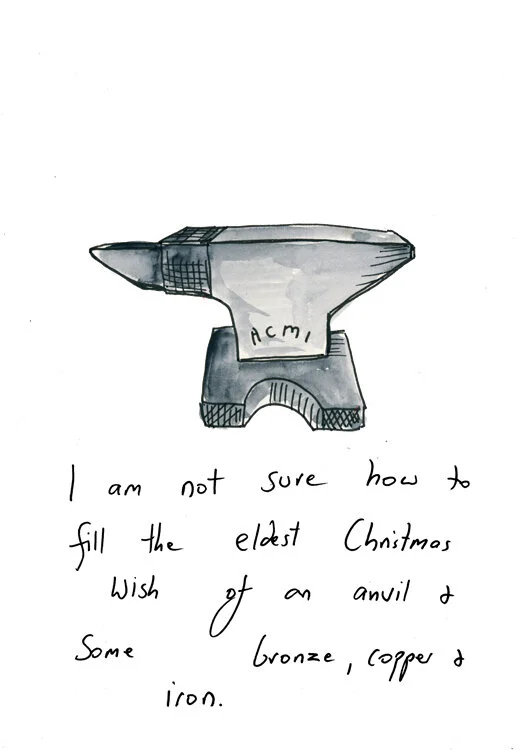 ACMI
I am not sure how to
fill the eldest Christmas
Wish of an anvil &
Some bronze, copper &
iron.